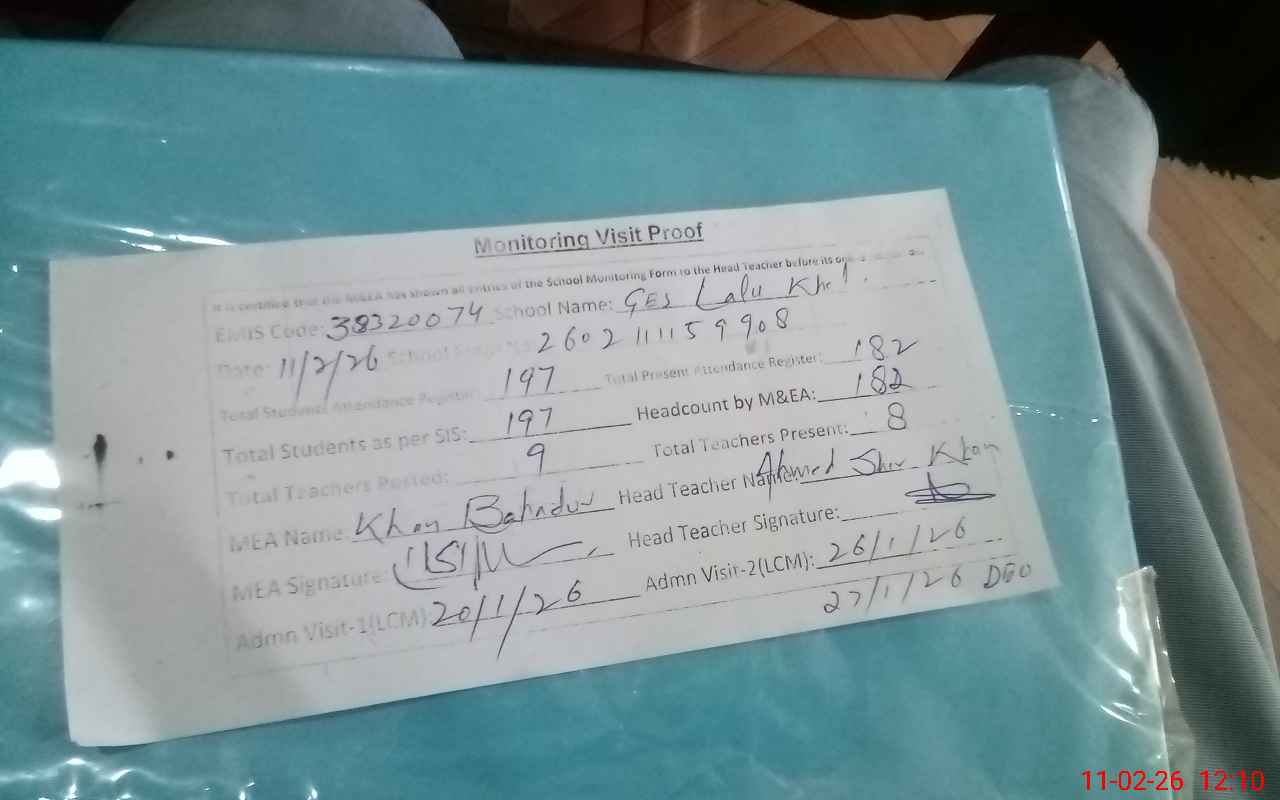 Monitoring Visit Proof
It is certified that the M&EA has shown all entries of the School Monitoring Form to the Head Teacher before its
EMIS Code: 38320074 School Name: GES Lalu Khel
Date: 11/2/26 School 26021115 9908
Total Students Attendance Register: 197 Total Present Attendance Register: 182
Total Students as per SIS: 197 Headcount by M&EA: 182
Total Teachers Posted: 9 Total Teachers Present: 8
MEA Name: Khan Bahadur Head Teacher Name: Ahmed Sher Khan
MEA Signature: Head Teacher Signature:
Admn Visit-1(LCM): 20/1/26 Admn Visit-2(LCM): 26/1/26
27/1/26 DEO
11-02-26 12:10